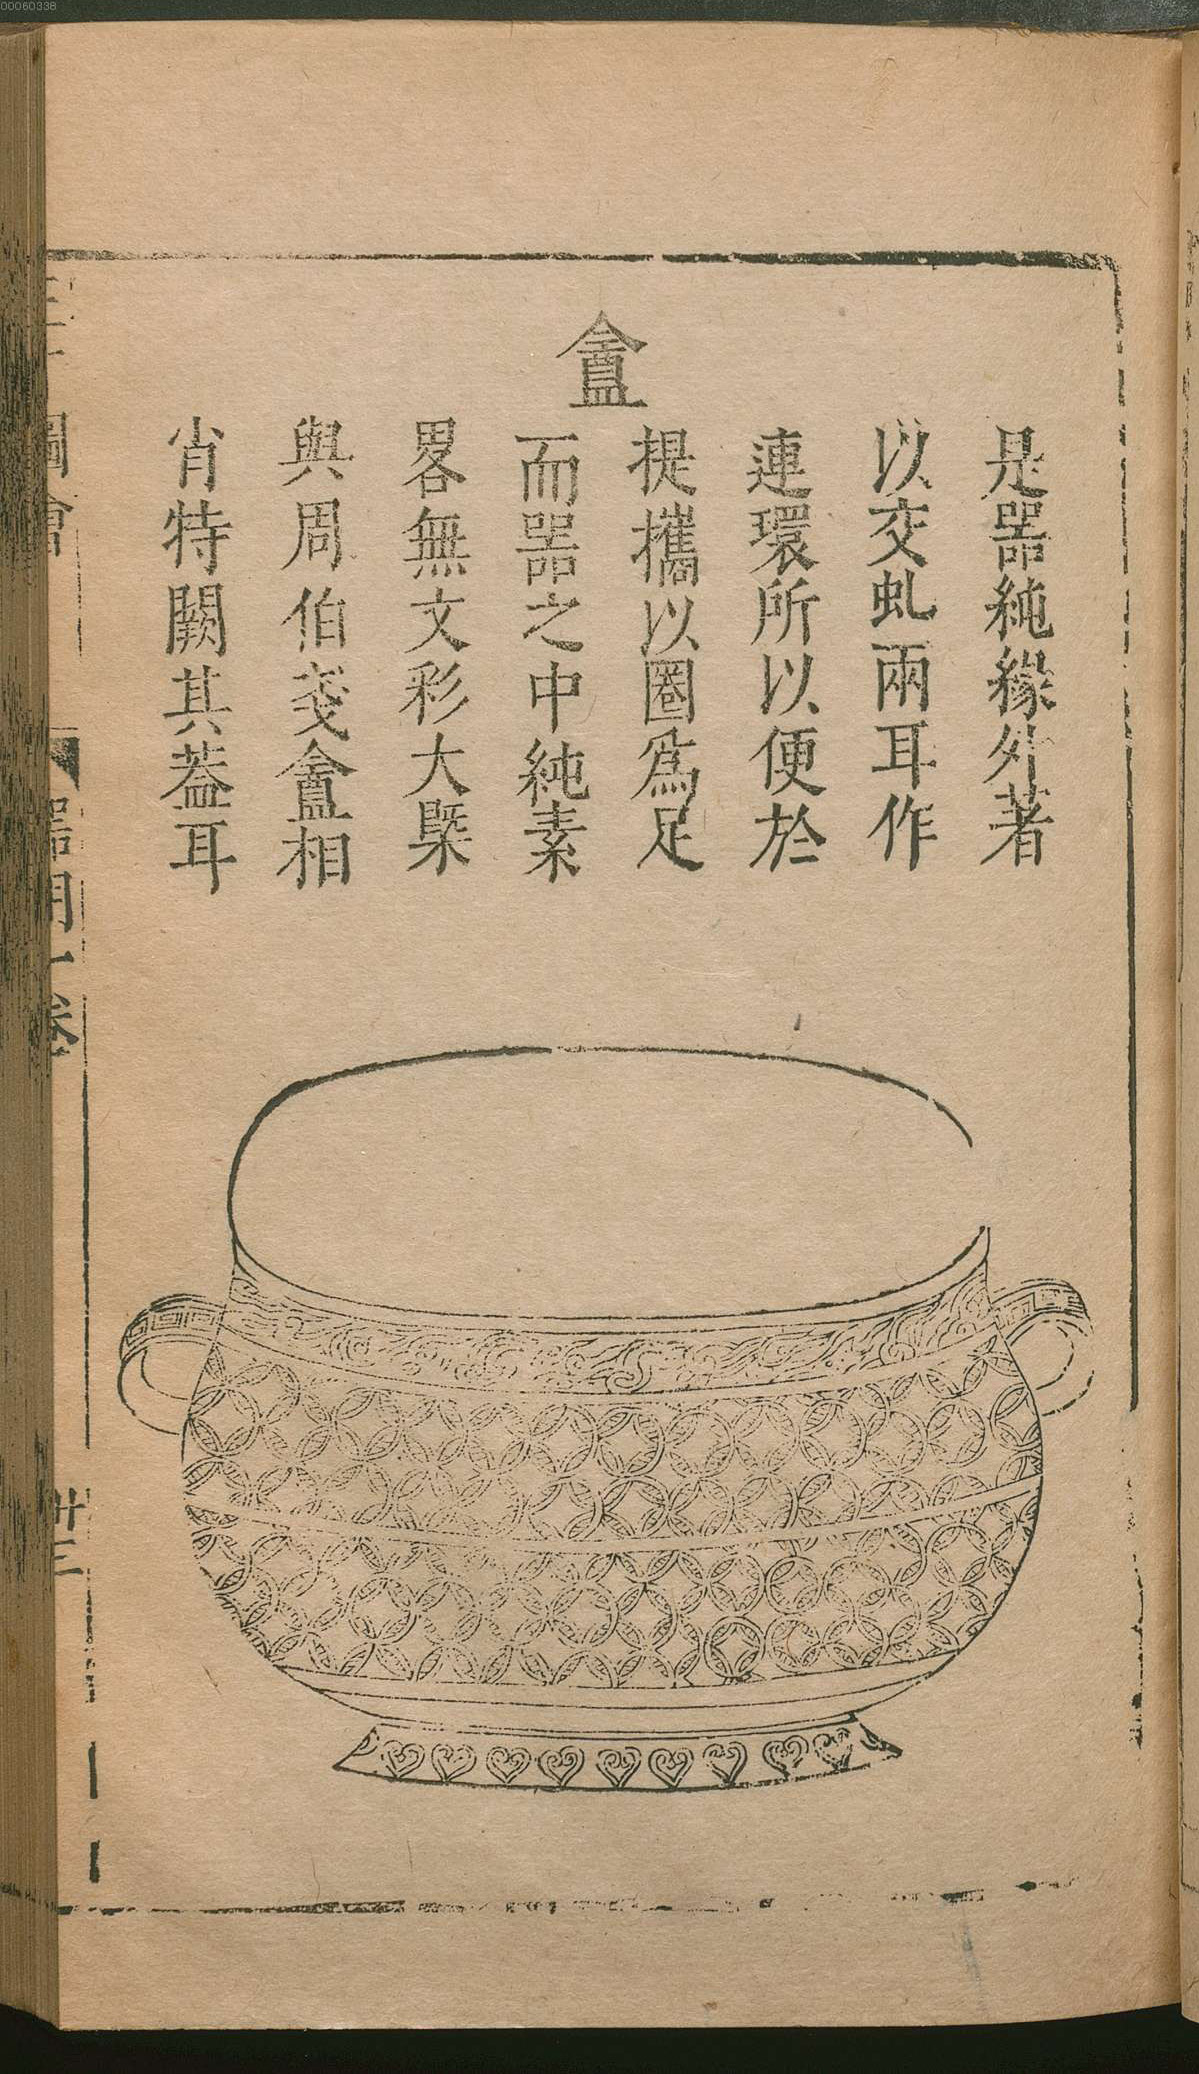 00060338
盦
是器純緣外著
以交虬兩耳作
連環所以便於
提攜以圈爲足
而器之中純素
畧無文彩大槩
與周伯戔盦相
肖特闕其葢耳
三才圖會
器用一卷
廿三